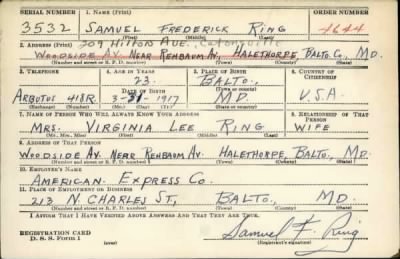 SERIAL NUMBER 1. NAME (Print) ORDER NUMBER
3532 SAMUEL FREDERICK RING 4644
(First) (Middle) (Last)
2. ADDRESS (Print) 209 Hilton Ave. Catonsville
WOODSIDE AV. NEAR REHBAUM AV. HALETHORPE BALTO. Co, MD.
(Number and street or R. F. D. number) (Town) (County) (State)
3. TELEPHONE 4. AGE IN YEARS 5. PLACE OF BIRTH 6. COUNTRY OF CITIZENSHIP
23 BALTO.,
DATE OF BIRTH (Town or county)
ARBUTUS 418R 3-28-1917 MD U.S.A.
(Exchange) (Number) (Mo.) (Day) (Yr.) (State or country)
7. NAME OF PERSON WHO WILL ALWAYS KNOW YOUR ADDRESS 8. RELATIONSHIP OF THAT PERSON
MRS. VIRGINIA LEE RING WIFE
(Mr., Mrs., Miss) (First) (Middle) (Last)
9. ADDRESS OF THAT PERSON
WOODSIDE AV. NEAR REHBAUM AV. HALETHORPE, BALTO., MD.
(Number and street or R. F. D. number) (Town) (County) (State)
10. EMPLOYER'S NAME
AMERICAN EXPRESS CO.
11. PLACE OF EMPLOYMENT OR BUSINESS
213 N. CHARLES ST, BALTO., MD.
(Number and street or R. F. D. number) (Town) (County) (State)
I AFFIRM THAT I HAVE VERIFIED ABOVE ANSWERS AND THAT THEY ARE TRUE.
REGISTRATION CARD
D. S. S. Form 1 (over) Samuel F. Ring
(Registrant's signature)